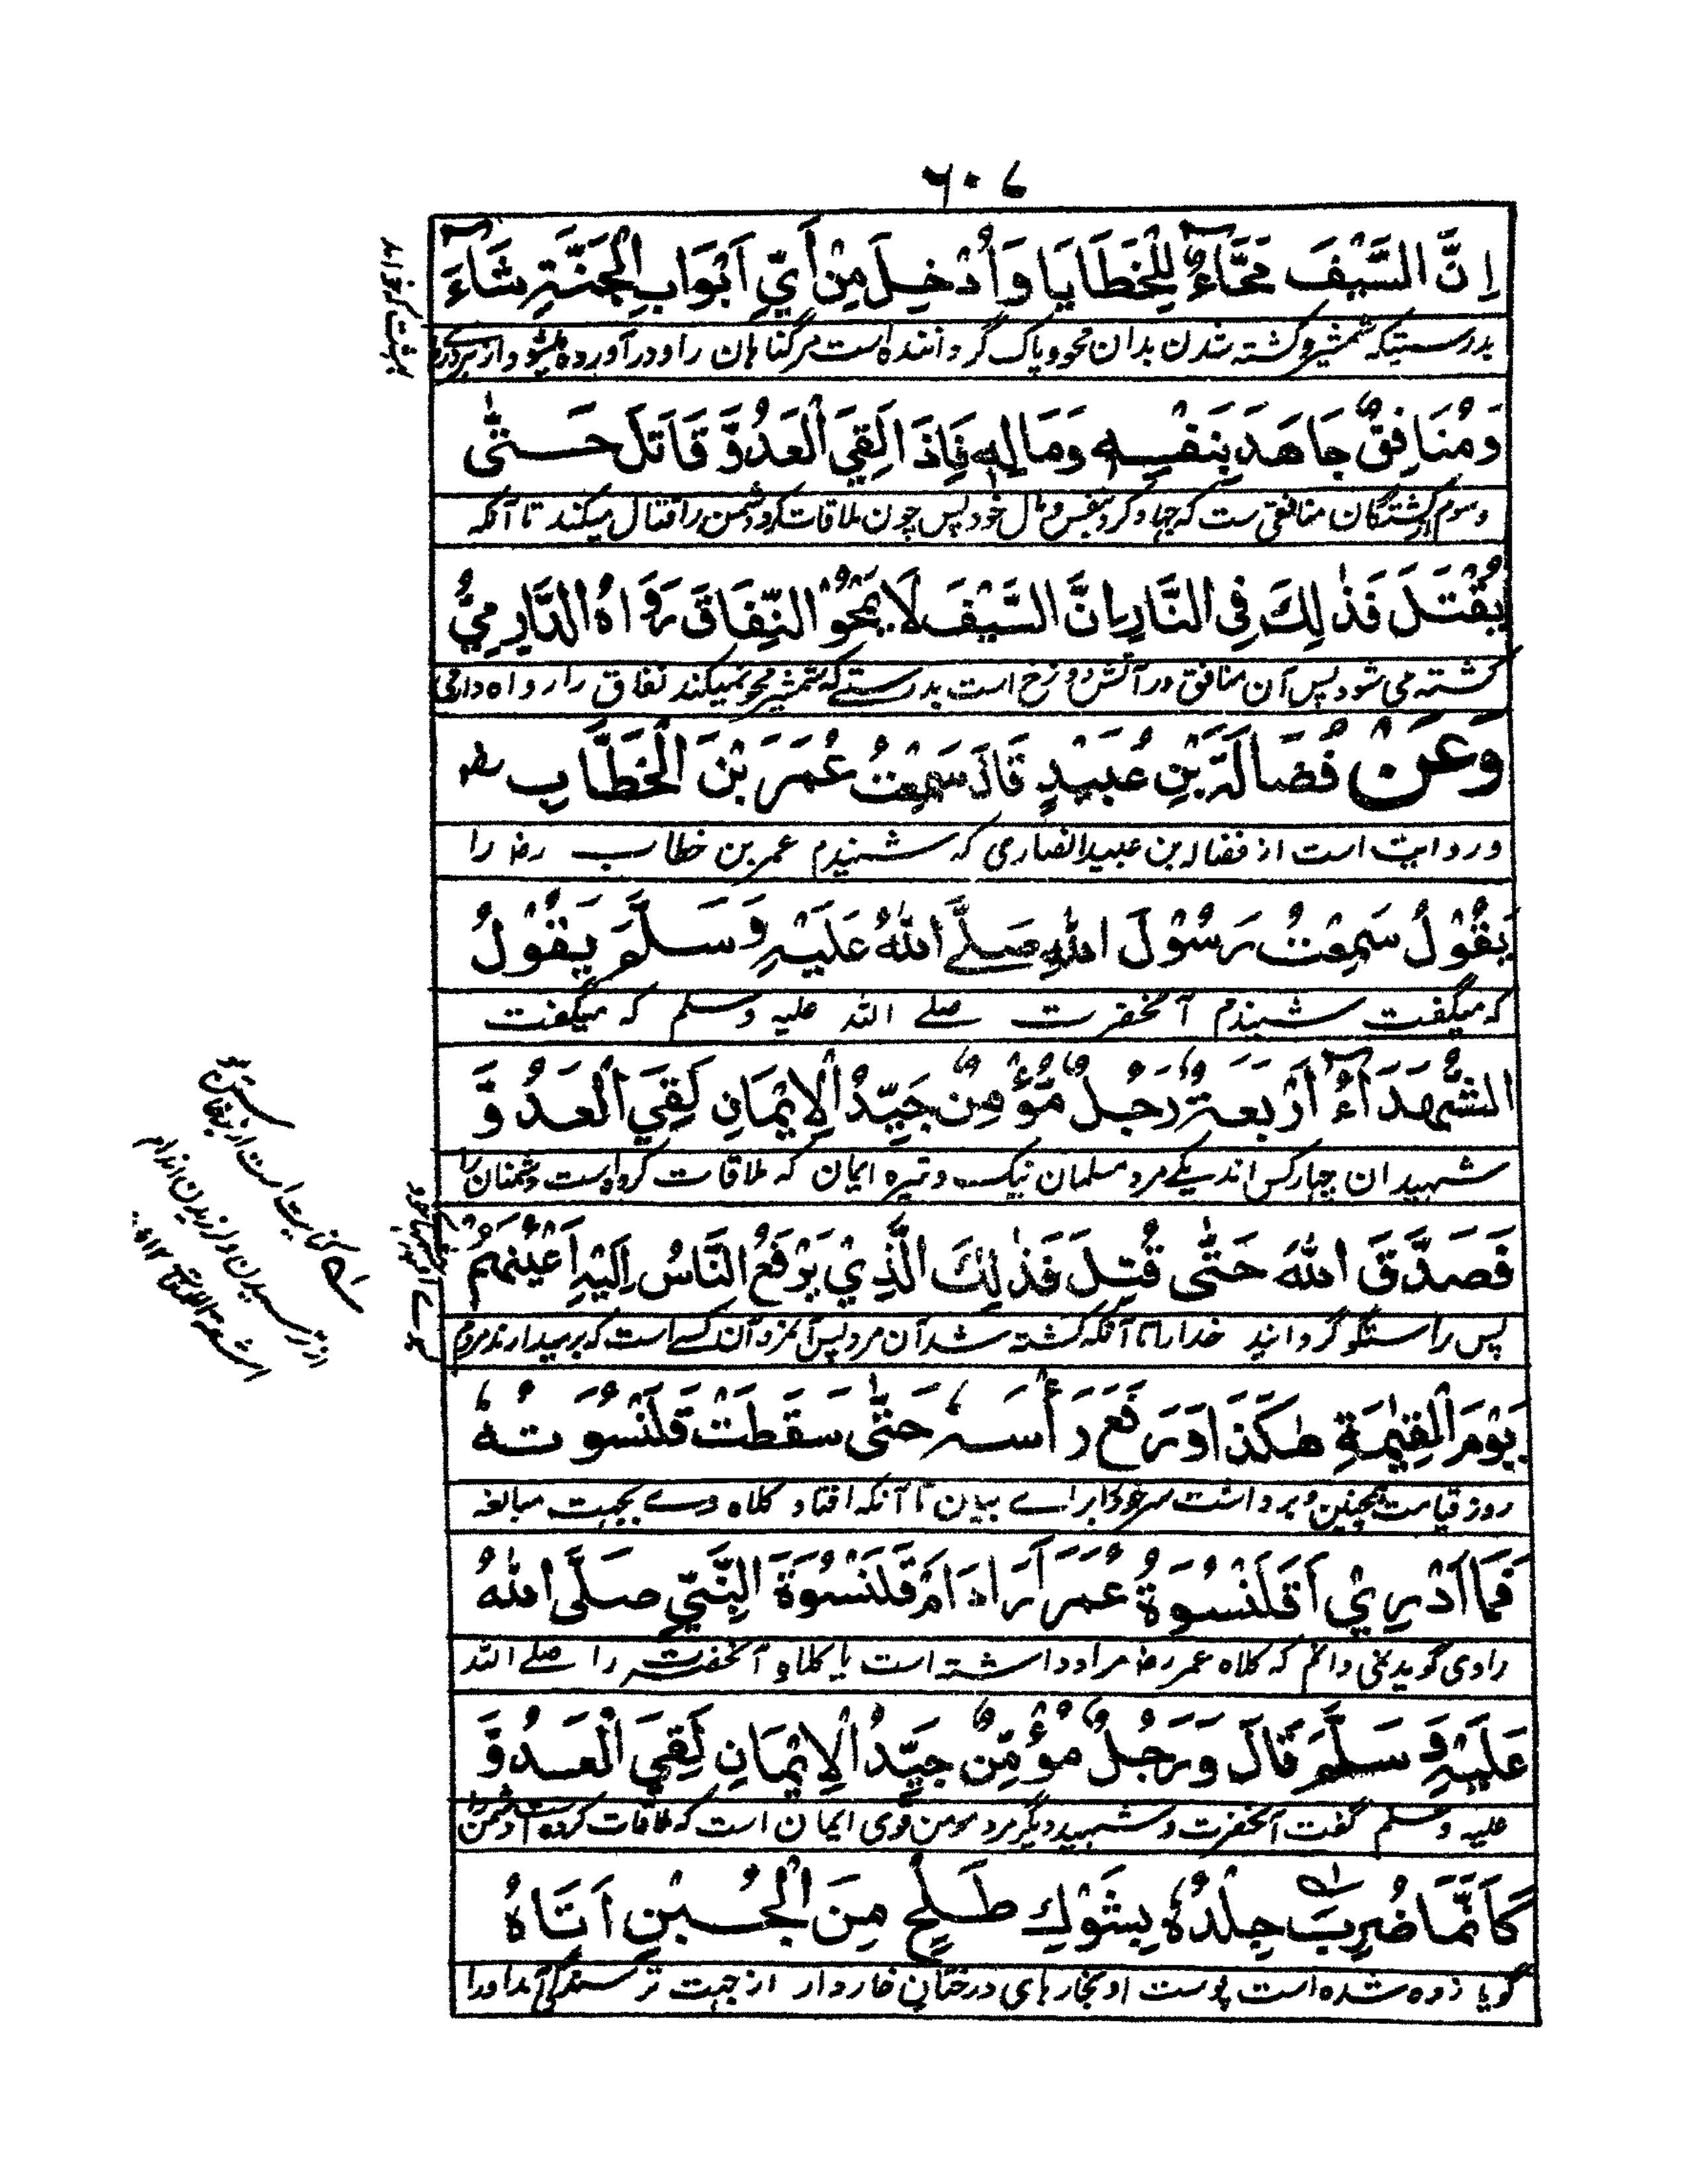 ٦٠٧
اِنَّ السَّيْفَ مَحَّاءٌ لِلْخَطَايَا وَاُدْخِلَ مِنْ اَيِّ اَبْوَابِ الْجَنَّةِ شَاءَ
بدرستیکه شمشیر و کشته شدن بدان محو و پاک گرداننده است مر گناهان را و در آورده میشود از هر در
بهشت که خواهد
وَمُنَافِقٌ جَاهَدَ بِنَفْسِهٖ وَمَالِهٖ فَاِذَا لَقِيَ الْعَدُوَّ قَاتَلَ حَتّٰى
و سوم کشتگان منافقی ست که جهاد کرد بنفس و مال خود پس چون ملاقات کرد دشمن را قتال میکند تا آنکه
يُقْتَلَ فَذٰلِكَ فِى النَّارِ اِنَّ السَّيْفَ لَا يَمْحُوْ النِّفَاقَ رَوَاهُ الدَّارِمِيُّ
کشته می شود پس آن منافق در آتش دوزخ است بدرستے که شمشیر محو نمیکند نفاق را رواه دارمی
وَعَنْ فُضَالَةَ بْنِ عُبَيْدٍ قَالَ سَمِعْتُ عُمَرَ بْنَ الْخَطَّابِ رض
و روایت است از فضاله بن عبید انصاری که شنیدم عمر بن خطاب رض را
يَقُوْلُ سَمِعْتُ رَسُوْلَ اللهِ صَلَّے اللهُ عَلَيْهِ وَسَلَّمَ يَقُوْلُ
که میگفت شنیدم آنحضرت صلے الله علیه و سلم که میگفت
الشُّهَدَاءُ اَرْبَعَةٌ رَجُلٌ مُّؤْمِنٌ جَيِّدُ الْاِيْمَانِ لَقِيَ الْعَدُوَّ
شهیدان چهار کس اند یکے مرد مسلمان نیک و تیره ایمان که ملاقات کرده است دشمنان را
فَصَدَّقَ اللهَ حَتّٰى قُتِلَ فَذٰلِكَ الَّذِيْ يَرْفَعُ النَّاسُ اِلَيْهِ اَعْيُنَهُمْ
پس راستگو گردانید خدا را تا آنکه کشته شد آن مرد پس آنمرد آن کسے است که بر میدارند مردم
يَوْمَ الْقِيٰمَةِ هٰكَذَا وَرَفَعَ رَأْسَهٗ حَتّٰى سَقَطَتْ قَلَنْسُوَتُهٗ
روز قیامت همچنین و برداشت سر خود را برای بیان تا آنکه افتاد کلاه وے بجهت مبالغه
فَمَا اَدْرِيْ اَقَلَنْسُوَةُ عُمَرَ اَرَادَ اَمْ قَلَنْسُوَةَ النَّبِيِّ صَلَّى اللهُ
راوی گوید نمی دانم که کلاه عمر رض مراد داشته است یا کلاه آنحضرت را صلے الله
عَلَيْهِ وَسَلَّمَ قَالَ وَرَجُلٌ مُؤْمِنٌ جَيِّدُ الْاِيْمَانِ لَقِيَ الْعَدُوَّ
علیه و سلم گفت آنحضرت و شهید دیگر مرد مومن قوی ایمان است که ملاقات کرده است دشمن را
كَاَنَّمَا ضُرِبَ جِلْدُهٗ بِشَوْكِ طَلْحٍ مِنَ الْجُبْنِ اَتَاهُ
گویا زده شده است پوست او بخارهای درختان خاردار از جهت ترسندگی آمد او را